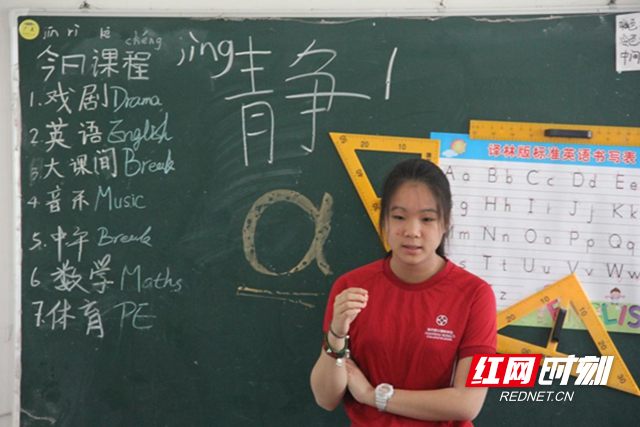 jīn rì kè chéng
今日课程
1.戏剧Drama
2.英语English
3.大课间Break
4音乐Music
5.中午Break
6数学Maths
7.体育PE
jìng
静
α
译林版标准英语书写表
Aa Bb Cc Dd Ee
Gg Hh Ii Jj Kk
Mm Nn Oo Pp Qq
Ss Tt Uu Vv Ww
中间
红网时刻
REDNET.CN